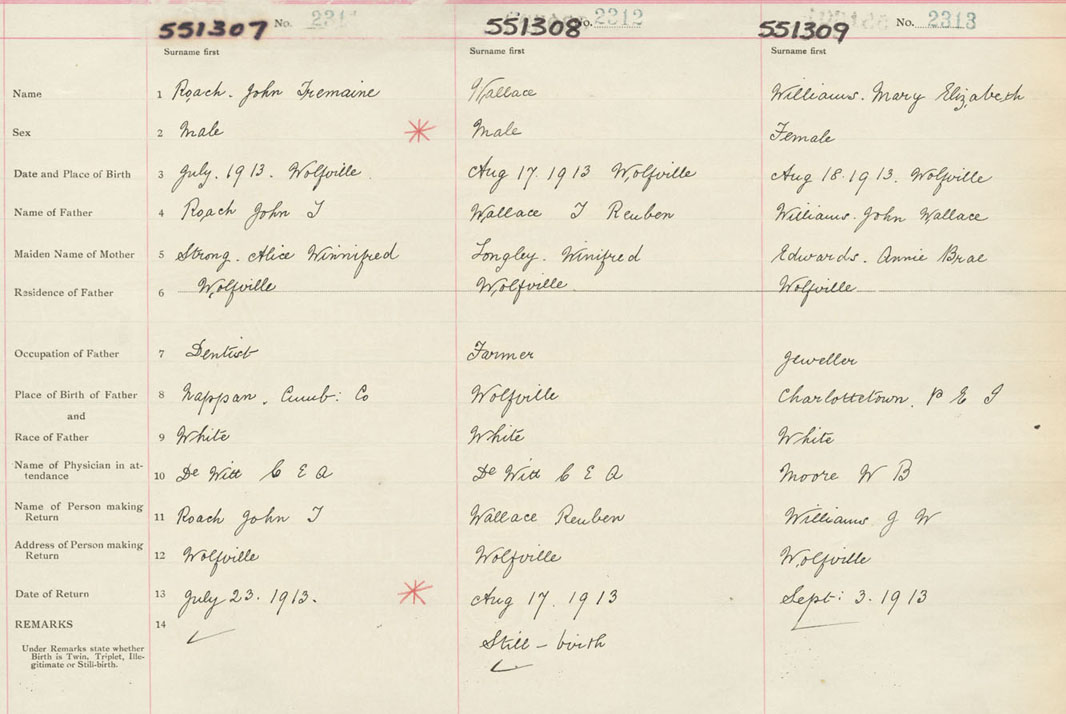 551307 No. 231
551308 No. 2312
551309 No. 2313
Surname first Surname first Surname first
Name 1 Roach. John Tremaine Wallace Williams. Mary Elizabeth
Sex 2 Male Male Female
Date and Place of Birth 3 July. 1913. Wolfville. Aug 17. 1913 Wolfville Aug 18. 1913. Wolfville
Name of Father 4 Roach John T Wallace T Reuben Williams. John Wallace
Maiden Name of Mother 5 Strong. Alice Winnifred Longley. Winifred Edwards. Annie Brae
Residence of Father 6 Wolfville Wolfville Wolfville
Occupation of Father 7 Dentist Farmer Jeweller
Place of Birth of Father 8 Nappan. Cumb: Co Wolfville Charlottetown. P E I
and
Race of Father 9 White White White
Name of Physician in at-
tendance 10 De Witt C E A De Witt C E A Moore W B
Name of Person making
Return 11 Roach John T Wallace Reuben Williams J W
Address of Person making
Return 12 Wolfville Wolfville Wolfville
Date of Return 13 July 23. 1913. Aug 17. 1913 Sept: 3. 1913
REMARKS 14
Still - birth
Under Remarks state whether
Birth is Twin, Triplet, Ille-
gitimate or Still-birth.